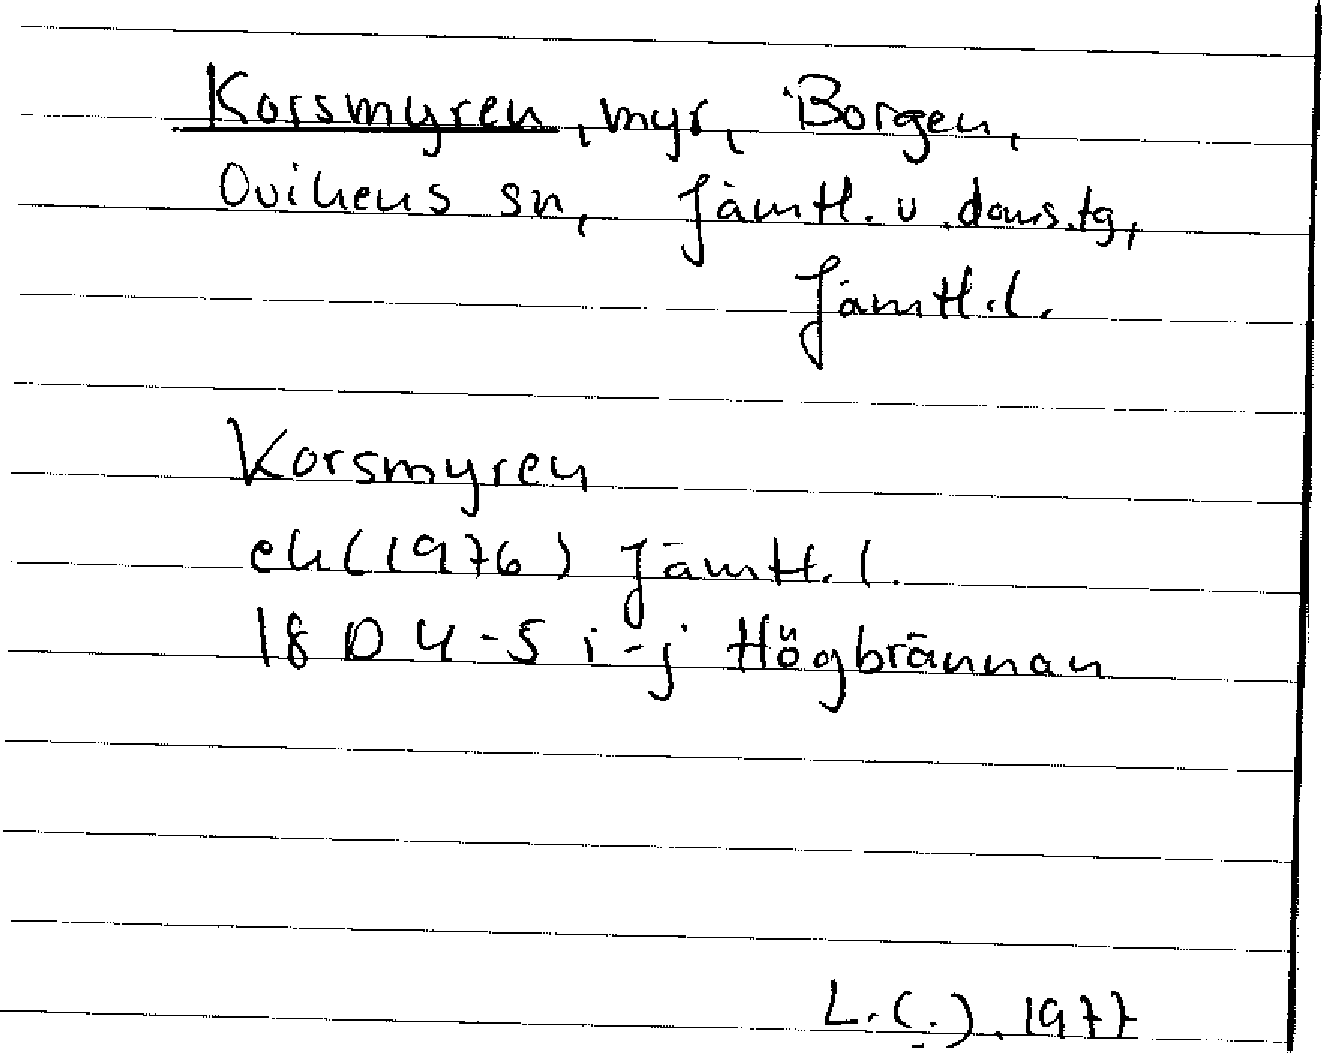 Korsmyren, myr, Borgen,
Ovikens sn, Jämtl. v. doms.tg,
Jämtl. l.
Korsmyren
ek (1976) Jämtl. l.
18 D 4-5 i-j Högbrännan
L.(.). 1977